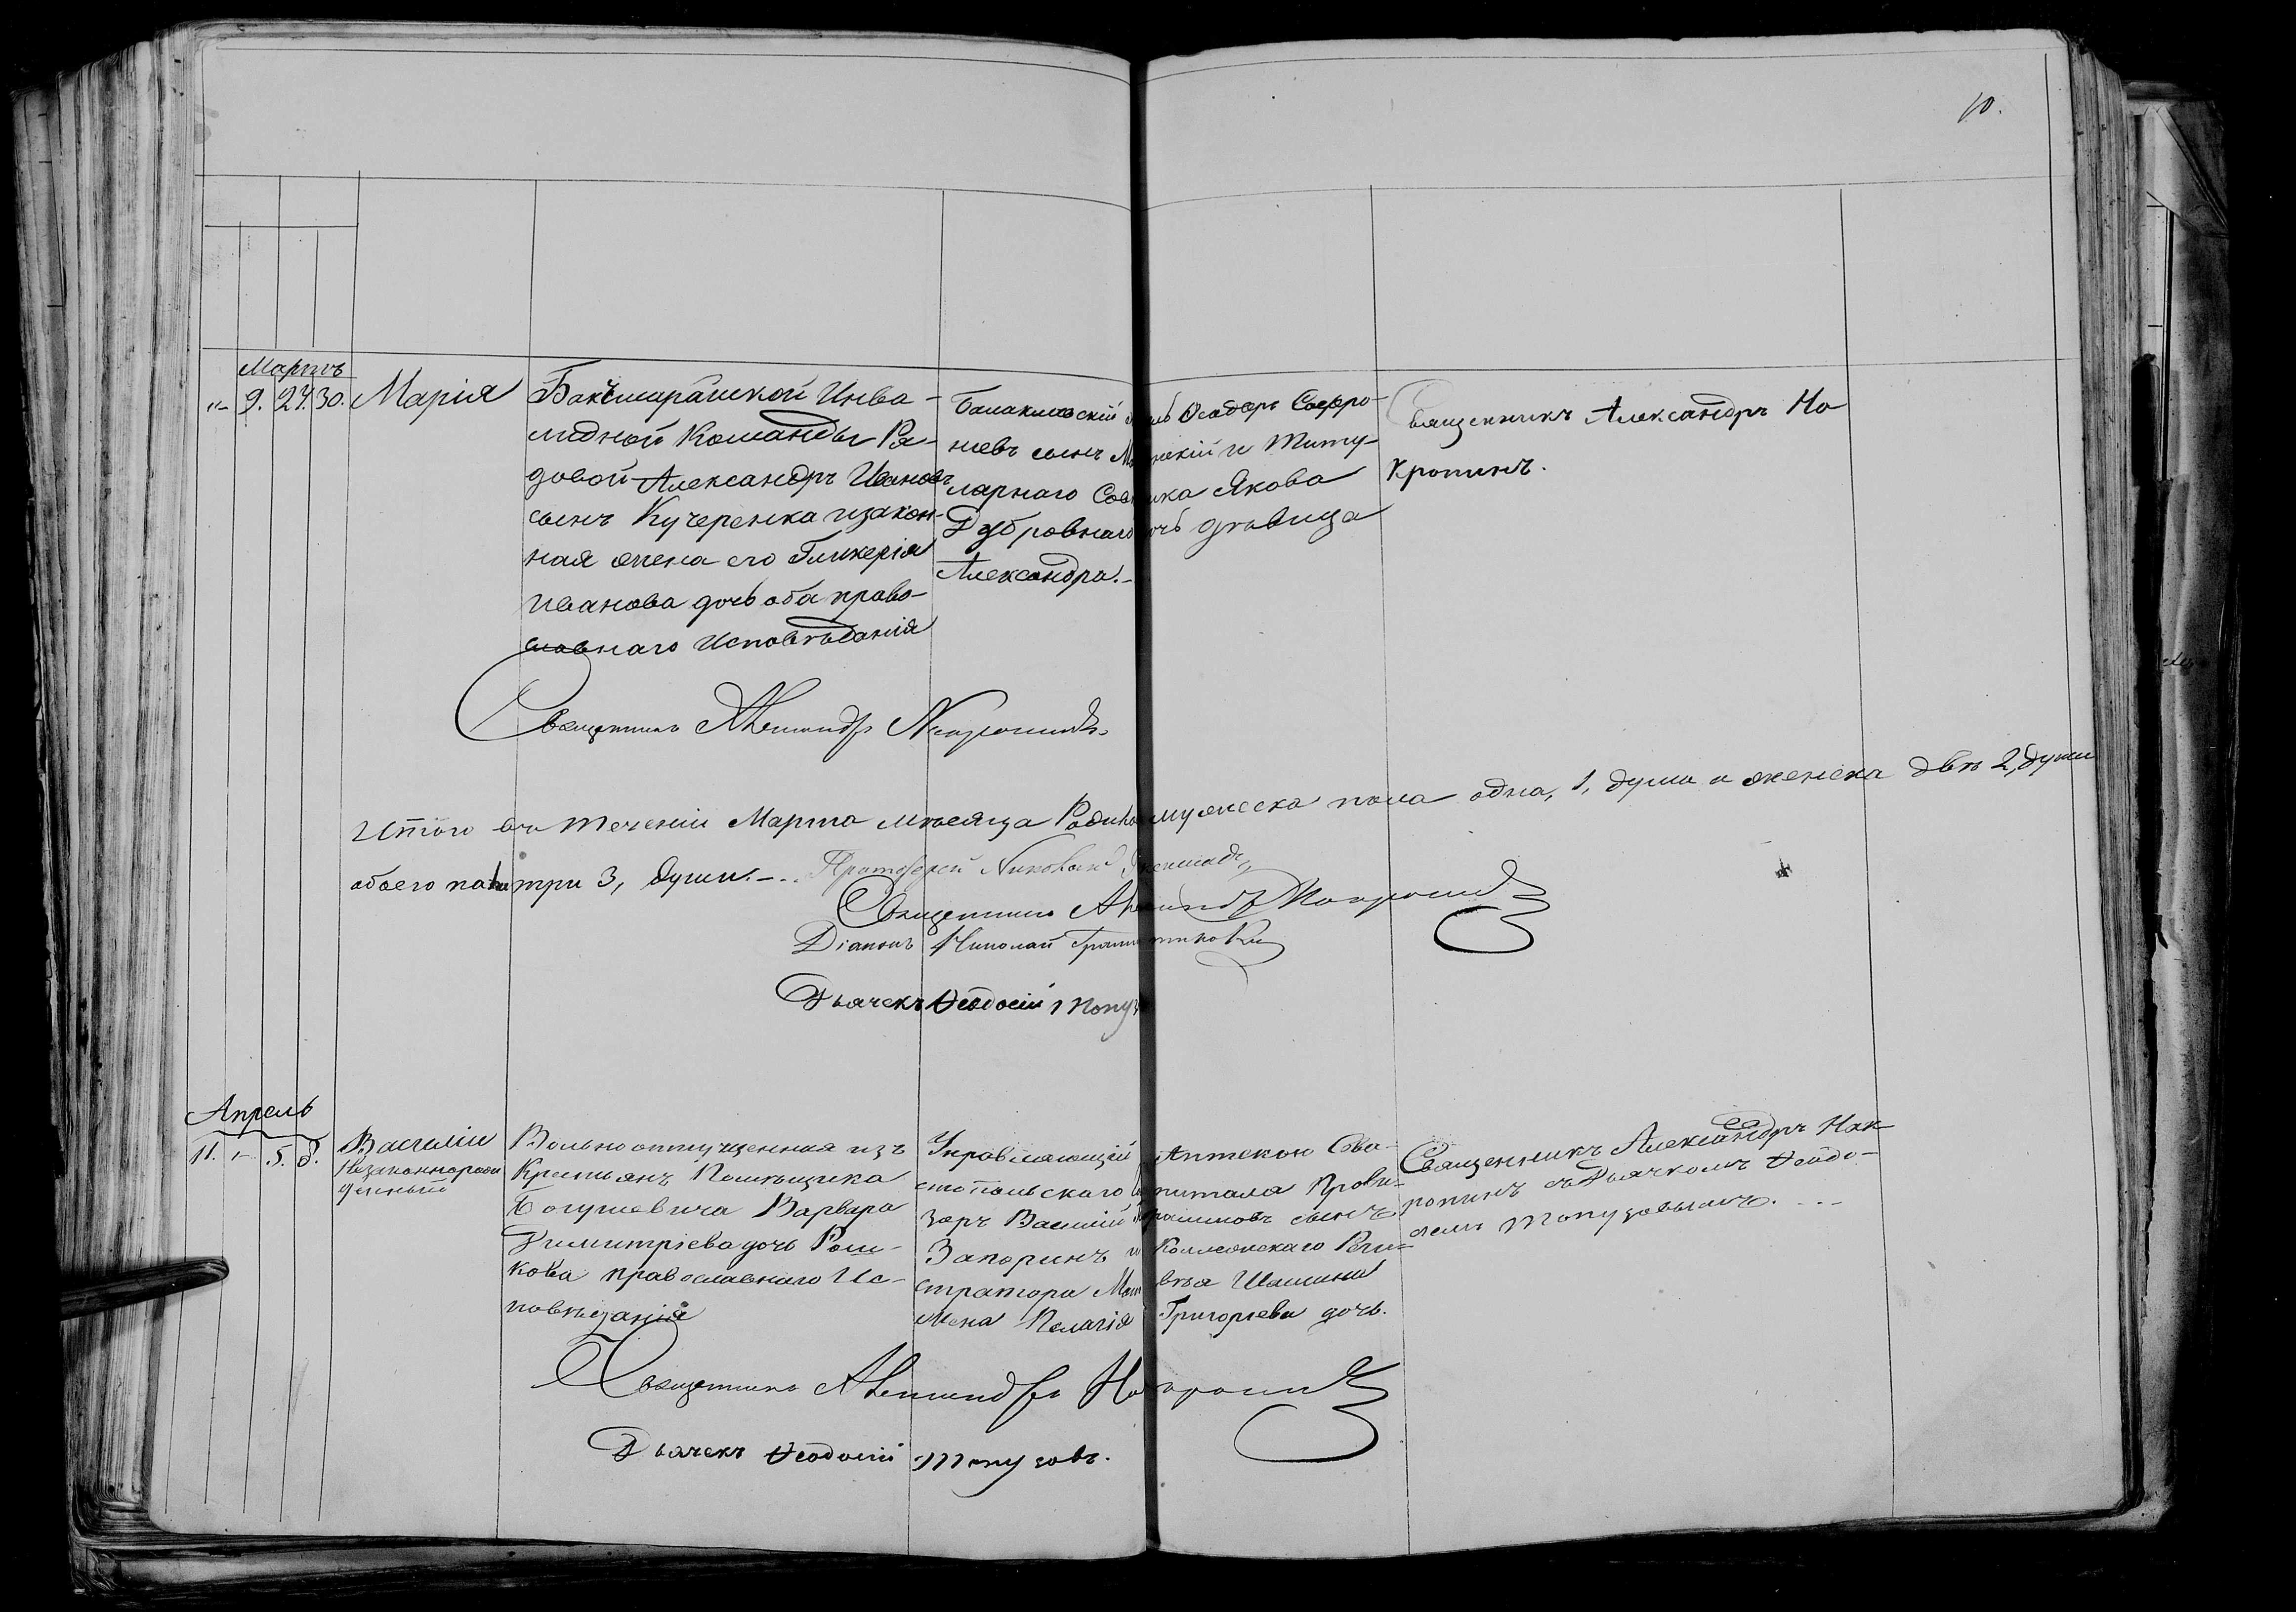 10.
Мартъ
"- 9. 24. 30. Марія
Бакчисарайской Инва-
лидной Команды Ря-
довой Александръ Ивановъ
сынъ Кучеренка и закон-
ная жена его Гликерія
Иванова дочь оба право-
славнаго Исповѣданія
Ѳеодоръ Софро-
ніевъ сынъ и Титу-
лярнаго Совѣтника Якова
Дубровнаго дочь дѣвица
Александра.-
Священникъ Александръ На
кропинъ.
Священникъ Александръ Накропинъ.
Итого въ теченіи Марта мѣсяца Родилось мужеска пола одна, 1, душа и женска двѣ 2, души
обоего пола три 3, души.-
Протоіерей
Священникъ Александръ Накропинъ
Діаконъ Николай
Дьячекъ Ѳеодосій Топуз
Апрель
11. "- 5. 8.
Василій
Незаконнорож
денный
Вольноотпущенная изъ
Крестьянъ Помѣщика
Богушевича Варвара
Димитріева дочь Рош-
кова православнаго Ис-
повѣданія
Управляющій Аптекою Сева-
стопольскаго Госпиталя Прови-
зоръ Василій сынъ
Запоринъ и Коллежскаго Реги-
стратора Матвѣя Шашина
жена Пелагія Григорьева дочь.
Священникъ Александръ Нак
ропинъ съ Дьячкомъ Ѳеодо-
сіемъ Топузовымъ. - - -
Священникъ Александръ Накропинъ
Дьячекъ Ѳеодосій Топузовъ.